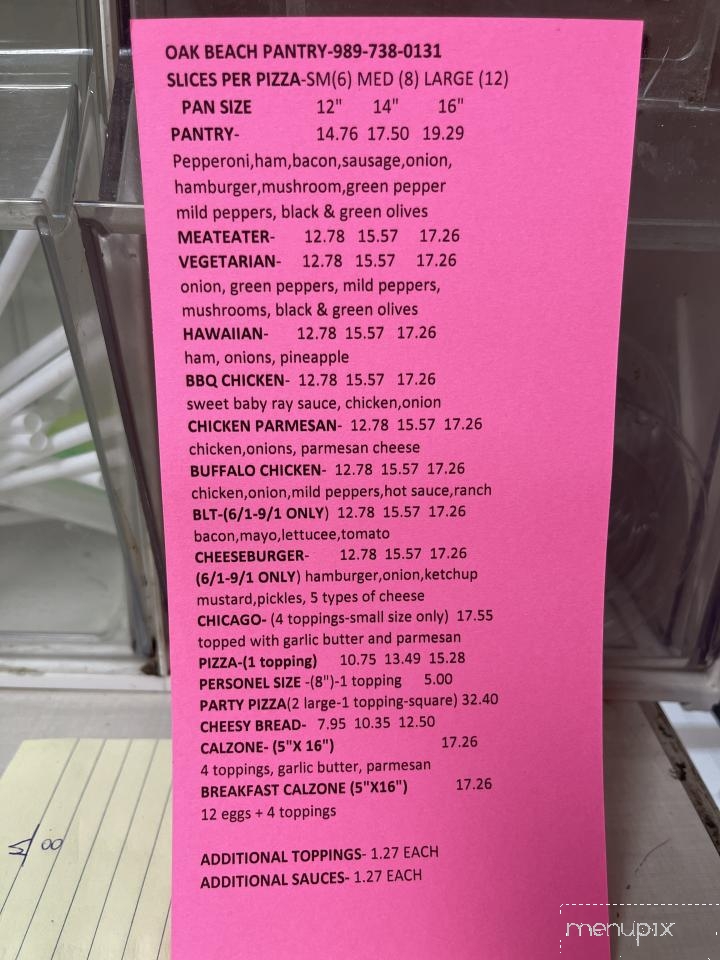 OAK BEACH PANTRY-989-738-0131
SLICES PER PIZZA-SM(6) MED (8) LARGE (12)
PAN SIZE 12" 14" 16"
PANTRY- 14.76 17.50 19.29
Pepperoni,ham,bacon,sausage,onion,
hamburger,mushroom,green pepper
mild peppers, black & green olives
MEATEATER- 12.78 15.57 17.26
VEGETARIAN- 12.78 15.57 17.26
onion, green peppers, mild peppers,
mushrooms, black & green olives
HAWAIIAN- 12.78 15.57 17.26
ham, onions, pineapple
BBQ CHICKEN- 12.78 15.57 17.26
sweet baby ray sauce, chicken,onion
CHICKEN PARMESAN- 12.78 15.57 17.26
chicken,onions, parmesan cheese
BUFFALO CHICKEN- 12.78 15.57 17.26
chicken,onion,mild peppers,hot sauce,ranch
BLT-(6/1-9/1 ONLY) 12.78 15.57 17.26
bacon,mayo,lettucee,tomato
CHEESEBURGER- 12.78 15.57 17.26
(6/1-9/1 ONLY) hamburger,onion,ketchup
mustard,pickles, 5 types of cheese
CHICAGO- (4 toppings-small size only) 17.55
topped with garlic butter and parmesan
PIZZA-(1 topping) 10.75 13.49 15.28
PERSONEL SIZE -(8")-1 topping 5.00
PARTY PIZZA(2 large-1 topping-square) 32.40
CHEESY BREAD- 7.95 10.35 12.50
CALZONE- (5"X 16") 17.26
4 toppings, garlic butter, parmesan
BREAKFAST CALZONE (5"X16") 17.26
12 eggs + 4 toppings
ADDITIONAL TOPPINGS- 1.27 EACH
ADDITIONAL SAUCES- 1.27 EACH
menupix